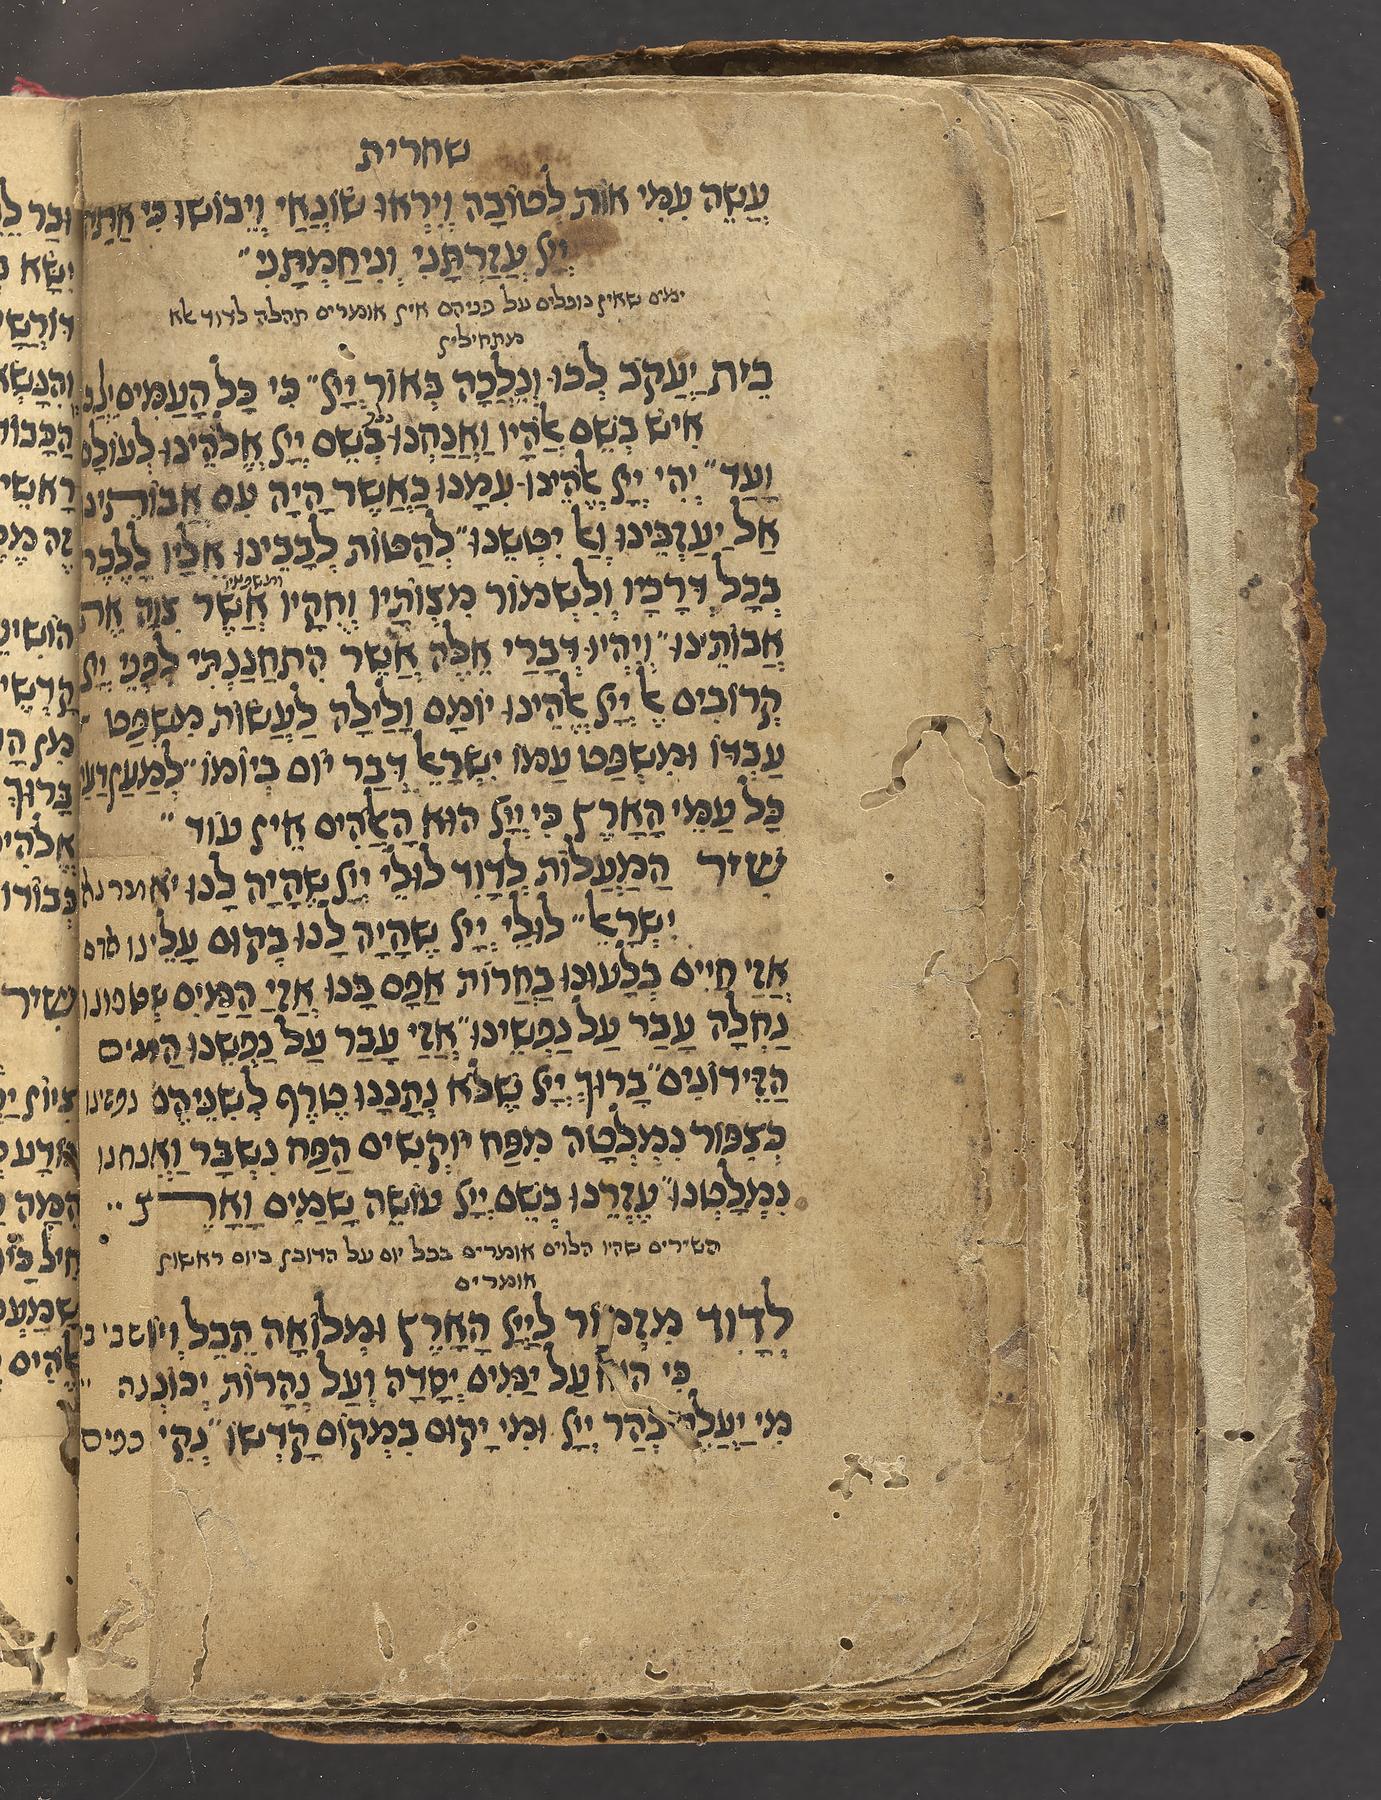 שחרית
עֲשֵׂה עִמִּי אוֹת לְטוֹבָה וְיִרְאוּ שׂוֹנְאַי וְיֵבוֹשׁוּ כִּי אַתָּה
יְיָ עֲזַרְתַּנִי וְנִיחַמְתָּנִי״
ימים שאין נופלים על פניהם אין אומרים תהלה לדוד אלא
מתחילין
בֵּית יַעֲקֹב לְכוּ וְנֵלְכָה בְּאוֹר יְיָ״ כִּי כָּל הָעַמִּים יֵלְכוּ
אִישׁ בְּשֵׁם אֱלֹהָיו וַאֲנַחְנוּ נלך בְּשֵׁם יְיָ אֱלֹהֵינוּ לְעוֹלָם
וָעֶד״ יְהִי יְיָ אֱלֹהֵינוּ עִמָּנוּ כַּאֲשֶׁר הָיָה עִם אֲבוֹתֵינוּ
אַל יַעַזְבֵינוּ וְאַל יִטְּשֵׁנוּ״ לְהַטּוֹת לְבָבֵינוּ אֵלָיו לָלֶכֶת
בְּכָל דְּרָכָיו וְלִשְׁמוֹר מִצְוֹתָיו וְחֻקָּיו ומשפטיו אֲשֶׁר צִוָּה אֶת
אֲבוֹתֵינוּ״ וְיִהְיוּ דְּבָרַי אֵלֶּה אֲשֶׁר הִתְחַנַּנְתִּי לִפְנֵי יְיָ
קְרוֹבִים אֶל יְיָ אֱלֹהֵינוּ יוֹמָם וָלַיְלָה לַעֲשׂוֹת מִשְׁפַּט
עַבְדּוֹ וּמִשְׁפַּט עַמּוֹ יִשְׂרָאֵל דְּבַר יוֹם בְּיוֹמוֹ״ לְמַעַן דַּעַת
כָּל עַמֵּי הָאָרֶץ כִּי יְיָ הוּא הָאֱלֹהִים אֵין עוֹד״
שִׁיר הַמַּעֲלוֹת לְדָוִד לוּלֵי יְיָ שֶׁהָיָה לָנוּ יֹאמר נא
יִשְׂרָאֵל״ לוּלֵי יְיָ שֶׁהָיָה לָנוּ בְּקוּם עָלֵינוּ אדם
אֲזַי חַיִּים בְּלָעוּנוּ בַּחֲרוֹת אַפָּם בָּנוּ אֲזַי הַמַּיִם שְׁטפונו
נַחְלָה עָבַר עַל נַפְשֵׁינוּ״ אֲזַי עָבַר עַל נַפְשֵׁנוּ הַמים
הַזֵּידוֹנִים״ בָּרוּךְ יְיָ שֶׁלֹּא נְתָנָנוּ טֶרֶף לְשִׁנֵּיהֶם נפשינו
כְּצִפּוֹר נִמְלְטָה מִפַּח יוֹקְשִׁים הַפַּח נִשְׁבָּר וַאֲנחנו
נִמְלָטְנוּ״ עֶזְרֵנוּ בְּשֵׁם יְיָ עוֹשֵׂה שָׁמַיִם וָאָרֶץ״
השירים שהיו הלוים אומרים בכל יום על הדוכן ביום ראשון
אומרים
לְדָוִד מִזְמוֹר לַיְיָ הָאָרֶץ וּמְלוֹאָהּ תֵּבֵל וְיוֹשבי בה
כִּי הוּא עַל יַמִּים יְסָדָהּ וְעַל נְהָרוֹת יְכוֹנְנֶהָ
מִי יַעֲלֶה בְהַר יְיָ וּמִי יָקוּם בִּמְקוֹם קָדְשׁוֹ״ נְקִי כפים